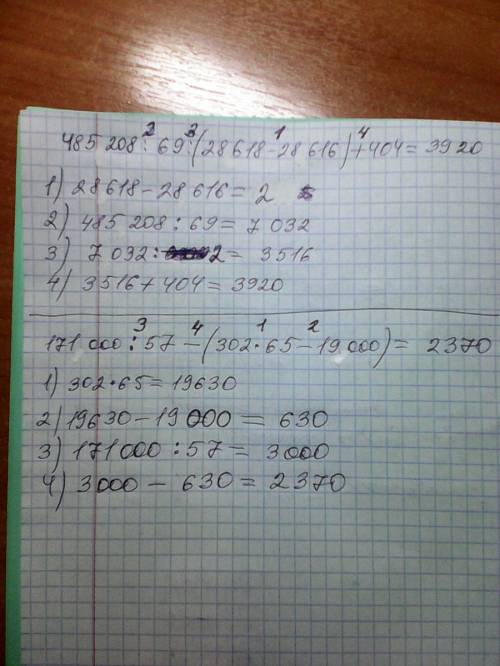 485 208 : 69 : (28618 - 28616) + 404 = 3920
1) 28618 - 28616 = 2
2) 485 208 : 69 = 7 032
3) 7 032 : 2 = 3516
4) 3516 + 404 = 3920
171 000 : 57 - (302 · 65 - 19 000) = 2370
1) 302 · 65 = 19630
2) 19630 - 19 000 = 630
3) 171000 : 57 = 3000
4) 3000 - 630 = 2370